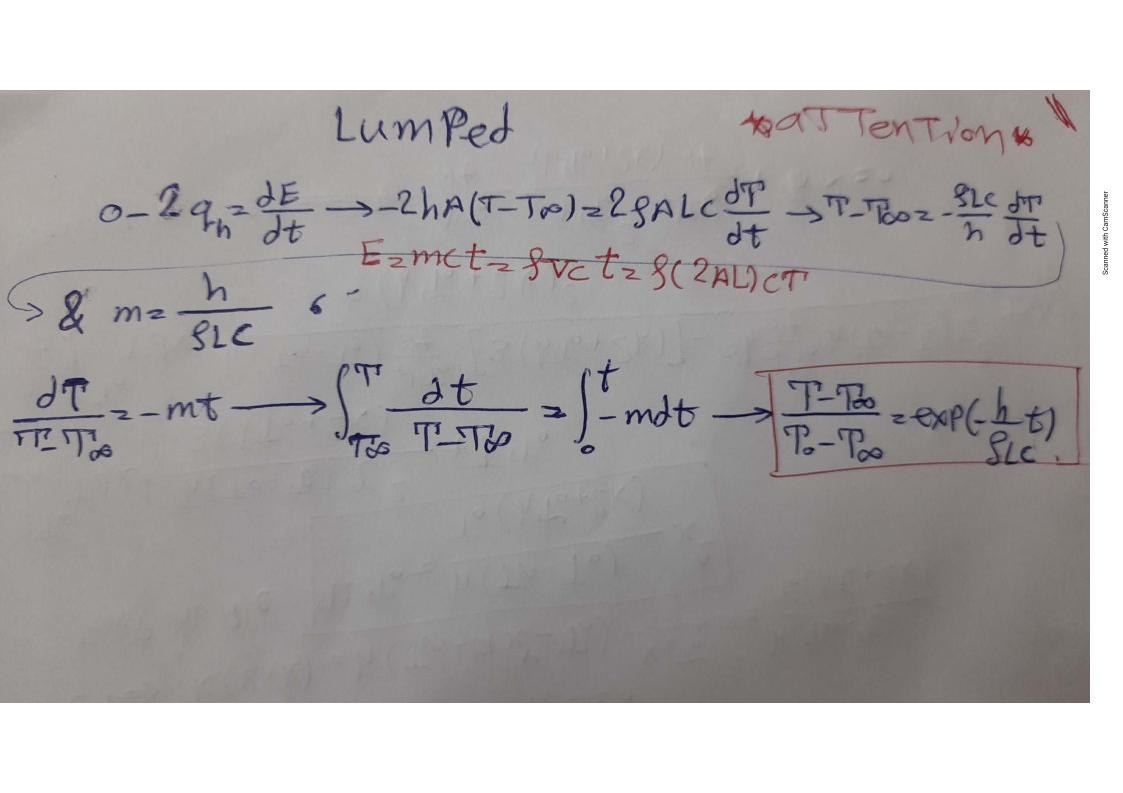 Lumped
*aTTenTion*
0-2q_h = dE/dt → -2hA(T-T∞) = 2ρALC dT/dt → T-T∞ = -ρLC/h dT/dt
E=mct = ρVc t = ρ(2AL)cT
& m = h/ρLC
dT/T-T∞ = -mt → ∫_T∞^T dt/T-T∞ = ∫_0^t -mdt → T-T∞/T₀-T∞ = exp(-h/ρLC t)
Scanned with CamScanner